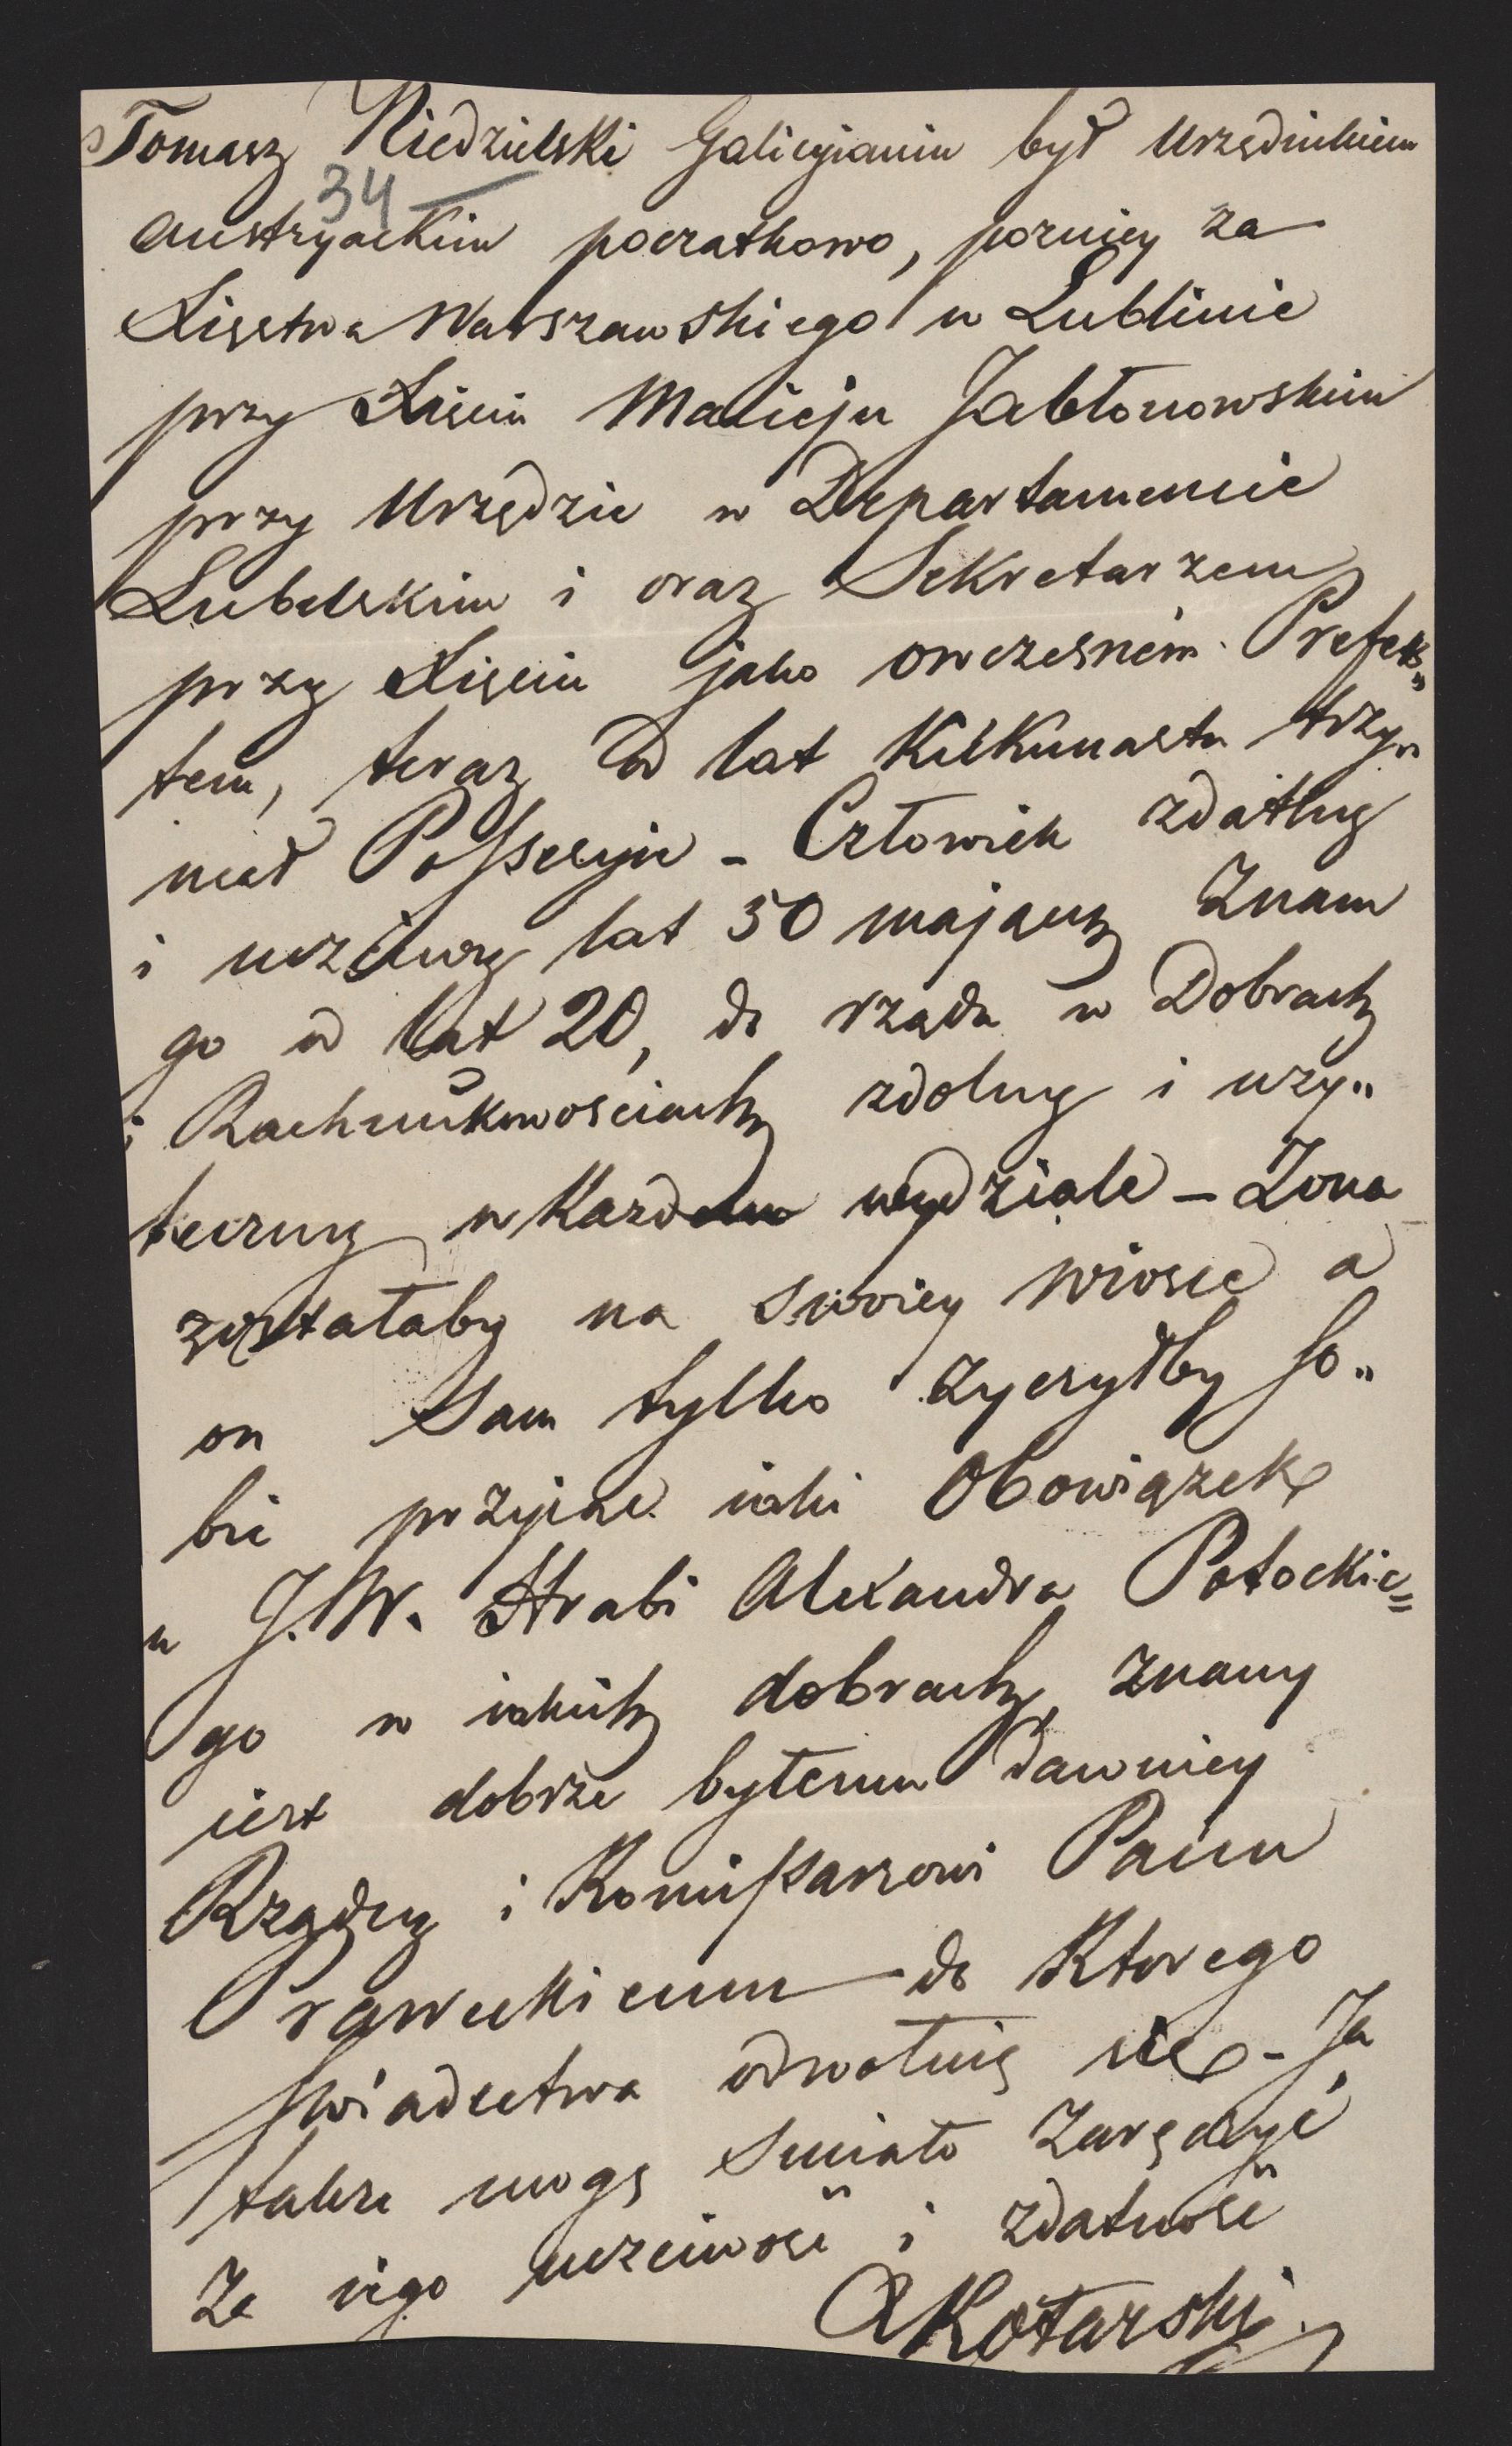 Tomasz Niedzielski Galicyianin był Urzędnikiem
34
Austryackim poczatkowo, pozniey za
Xięstwa Warszawskiego w Lublinie
przy Xięciu Macieju Jabłonowskim
przy Urzędzie w Departamencie
Lubelskim i oraz Sekretarzem
przy Xięciu jako owczesnem Prefek„
tem, teraz od lat Kilkunastu trzy„
mał Possessyie - Człowiek zdatny
i uczciwy lat 50 mający Znam
go od lat 20, do rządu w Dobrach
i Rachunkowościach zdolny i uzy„
teczny w Kazdem wydziale - Zona
zostałaby na swoiey wiosce a
on Sam tylko zyczyłby so„
bie przyiąc iaki Obowiązek
u J.W. Hrabi Alexandra Potockie„
go w iakich dobrach, znany
iest dobrze bytemu dawniey
Rządcy i Komissarzowi Panu
do Ktorego
swiadectwa odwołuię się - Ja
także mogę smiało Zaręczyć
Za iego uczciwość i zdatność
AKotarski